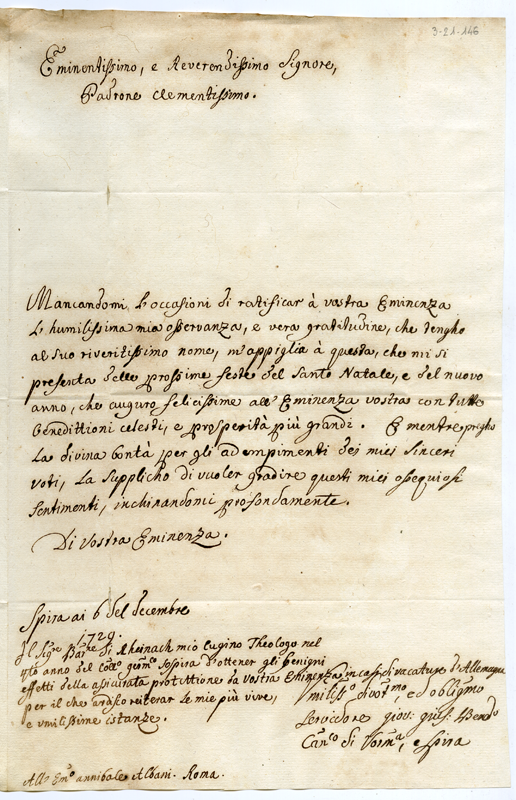 3-21-146
Eminentissimo, e Reverendissimo Signore,
Padrone Clementissimo.
Mancandomi l'occasioni di ratificar à vostra Eminenza
l'humilissima mia osservanza, e vera gratitudine, che tengho
al suo riveritissimo nome, m'appiglia à questa, che mi si
presenta delle prossime feste del Santo Natale, e del nuovo
anno, che auguro felicissime all'Eminenza vostra con tutte
benedittioni celesti, e prosperità più grandi. E mentre prigho
la divina bontà per gli adempimenti dei miei sinceri
voti, la supplicho di vuoler gradire questi miei ossequiosi
sentimenti, inchinandomi profondamente.
Di Vostra Eminenza.
Spira ai 6 del decembre
1729.
Il Sigre Barne di Rheinach mio cugino Theologo nel
anno del sospira d'ottener gli benigni
effetti della asicurata protettione da vostra Eminenza in casi di vacature d'Allemagna
per il che ardisco reiterar le mie più vive,
e umilissime istanze.
miliss° divotmo, e obligmo
Servidore giov: gius:
Canco di Vorma, e Spira
All' Emo annibale Albani. Roma.